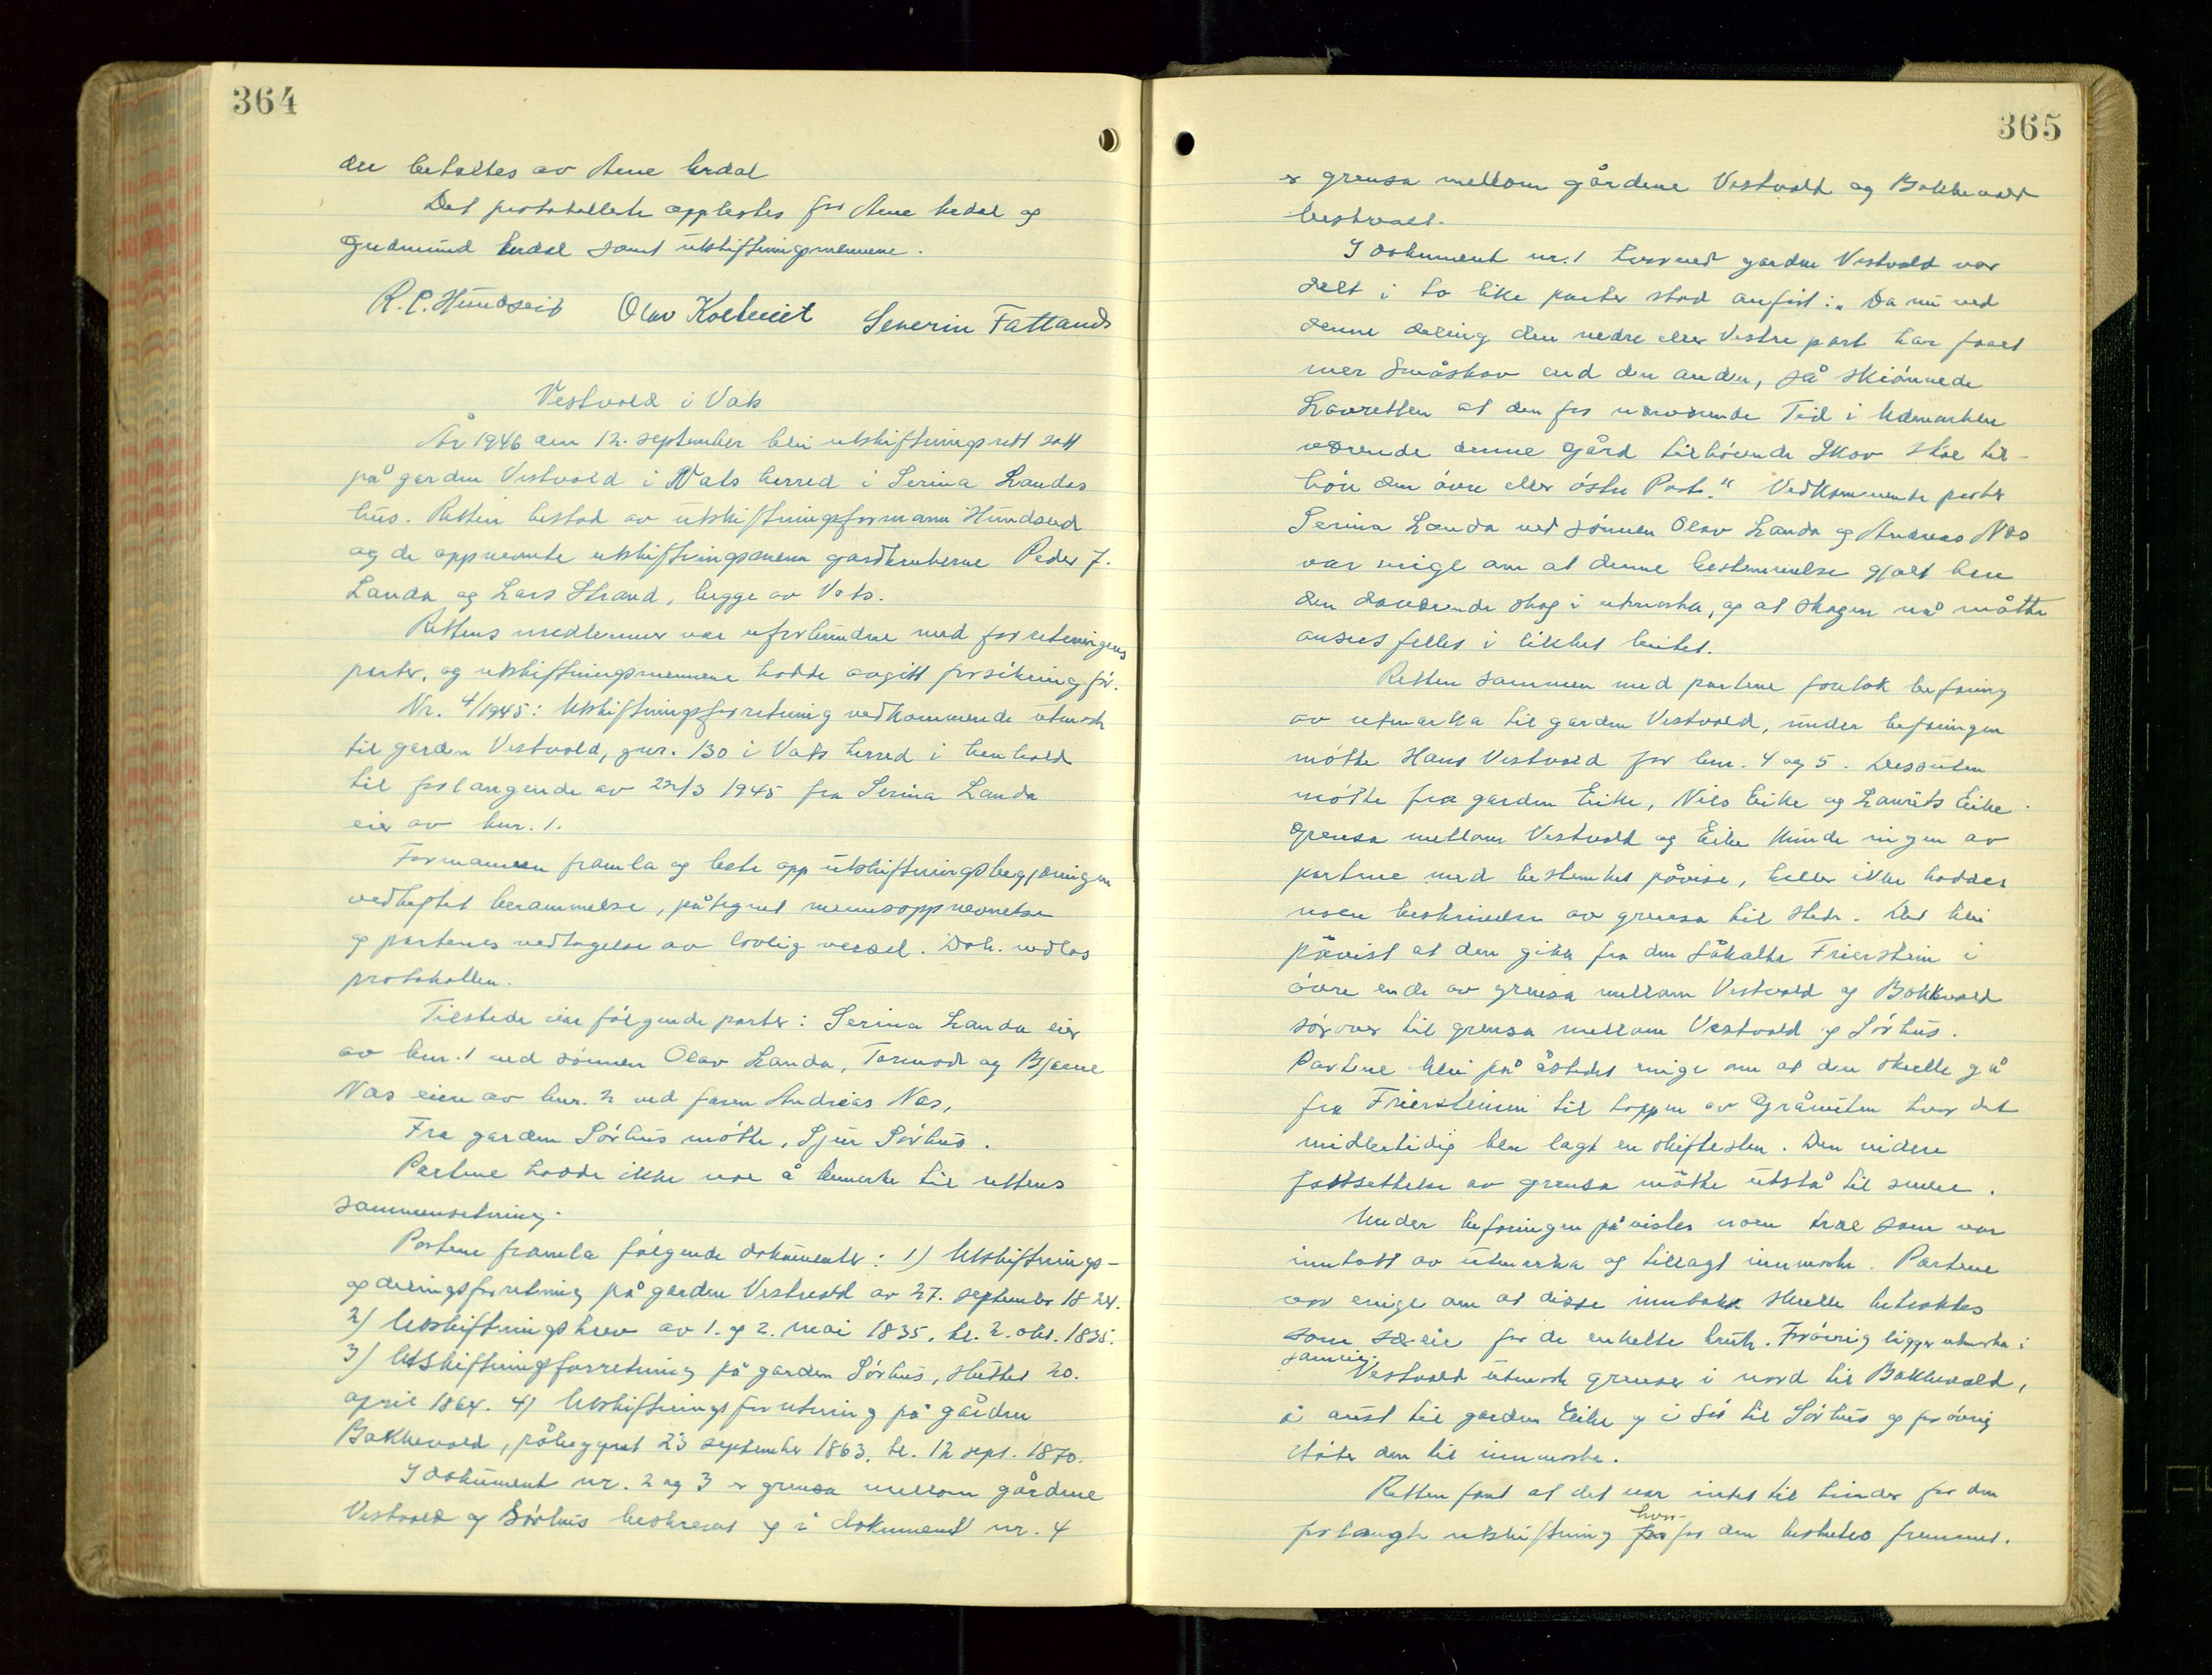 364
der betaltes av Arne Erdal
Det protokollerte opplestes for Arne Erdal og
Gudmund Erdal samt utskiftningsmennene.
R. P. Hundseid Olav Kolbeit Severin Fatland
Vestvold i Vats
År 1946 den 12. september blei utskiftningsrett satt
på garden Vestvold i Vats herred i Serina Landas
hus. Retten bestod av utskiftningsformann Hundseid
og de oppnevnte utskiftningsmenn gardbrukerne Peder J.
Landa og Lars Strand, begge av Vats.
Rettens medlemmer var uforbundne med forretningens
parter, og utskiftningsmennene hadde avgitt forsikring før.
Nr. 4/1945: Utskiftningsforretning vedkommende utmark
til garden Vestvold, gnr. 130 i Vats herred i henhold
til forlangende av 22/3 1945 fra Serina Landa
eier av bnr. 1.
Formannen framla og leste opp utskiftningsbegjæringen
vedheftet berammelse, påtegnet mennsoppnevnelse
og partenes vedtagelse av lovlig varsel. Dok. vedlas
protokollen.
Tilstede var følgende parter: Serina Landa eier
av bnr. 1 ved sønnen Olav Landa, Tormod og Bjarne
Nas eiere av bnr. 2 ved faren Andreas Nas,
Fra garden Sørhus møtte, Sjur Sørhus.
Partene hadde ikke noe å bemerke til rettens
sammensetning.
Partene framla følgende dokumenter: 1) Utskiftnings-
og delingsforretning på garden Vestvold av 27. september 1824.
2) Utskiftningsbrev av 1. og 2. mai 1835, tl. 2. okt. 1835.
3) Utskiftningsforretning på garden Sørhus, sluttet 20.
april 1864. 4) Utskiftningsforretning på gården
Bakkevold, påbegynt 23 september 1863, tl. 12 sept. 1870.
I dokument nr. 2 og 3 er grensa mellom gårdene
Vestvold og Sørhus beskrevet og i dokument nr. 4
365
er grensa mellom gårdene Vestvold og Bakkevold
beskrevet.
I dokument nr. 1 hvorved garden Vestvold var
delt i to like parter stod anført: „Da nu ved
denne deling den nedre eller Vestre part har faaet
mer Småskov end den anden, så skiønnede
Lavretten at den for nærværende Tid i Udmarken
værende denne Gård tilhørende Skov skal til-
høre den øvre eller østre Part." Vedkommende parter
Serina Landa ved sønnen Olav Landa og Andreas Nas
var enige om at denne bestemmelse gjalt bare
den daværende skog i utmarka, og at skogen nå måtte
ansees felles i likhet beitet.
Retten sammen med partene foretok befaring
av utmarka til garden Vestvold, under befaringen
møtte Hans Vestvold for bnr. 4 og 5. Dessuten
møtte fra garden Eike, Nils Eike og Laurits Eike.
Grensa mellom Vestvold og Eike kunde ingen av
partene med bestemthet påvise, heller ikke haddes
noen beskrivelse av grensa til stede. Det blei
påvist at den gikk fra den såkalte Frierstein i
øvre ende av grensa mellom Vestvold og Bakkevold
sørover til grensa mellom Vestvold og Sørhus.
Partene blei på åstedet enige om at den skulle gå
fra Friersteinen til toppen av Gränuten hvor det
midlertidig ble lagt en skiftesten. Den videre
fastsettelse av grensa måtte utstå til senere.
Under befaringen påvistes noen træe som var
inntatt av utmarka og tillagt innmark. Partene
var enige om at disse inntak skulle betraktes
som sæeie for de enkelte bruk. Forøvrig ligger utmarka i
sameie.
Vestvold utmark grenser i nord til Bakkevold,
i aust til garden Eike og i sør til Sørhus og forøvrig
støter den til innmarka.
Retten fant at det var intet til hinder for den
forlangte utskiftning hvorfor den besluttes fremmet.